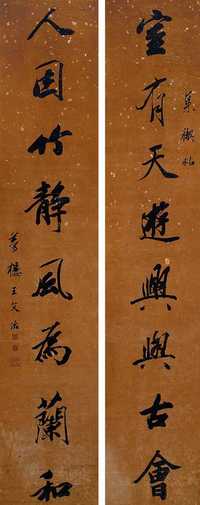 集禊帖
室有天遊興與古會
人因竹靜風為蘭和
夢樓王文治